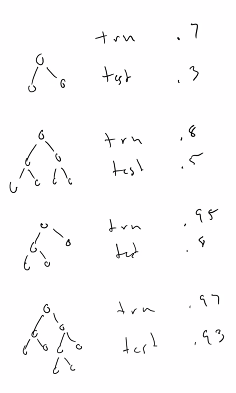 trn .7
test .3
trn .8
test .5
trn .95
test .8
trn .97
test .93